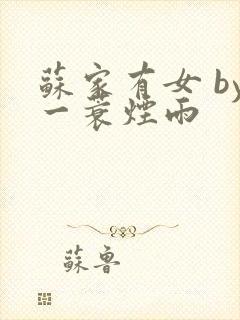 蘇家有女 by
一蓑煙雨
蘇魯